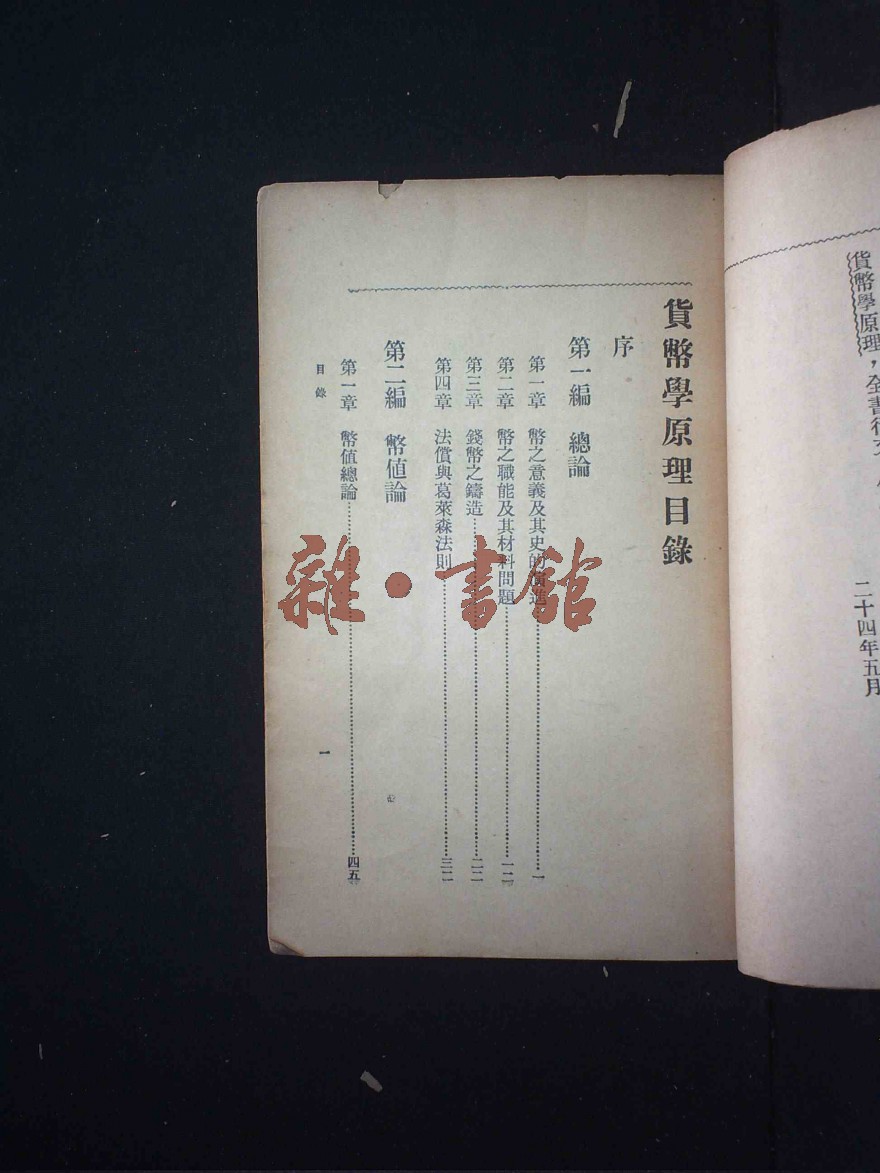 貨幣學原理，全書行文
二十四年五月
貨幣學原理目錄
序
第一編　總論
第一章　幣之意義及其史的演進……一
第二章　幣之職能及其材料問題……一二
第三章　錢幣之鑄造……二二
第四章　法償與葛萊森法則……三二
第二編　幣值論
第一章　幣值總論……四五
目錄
一
雜·書館